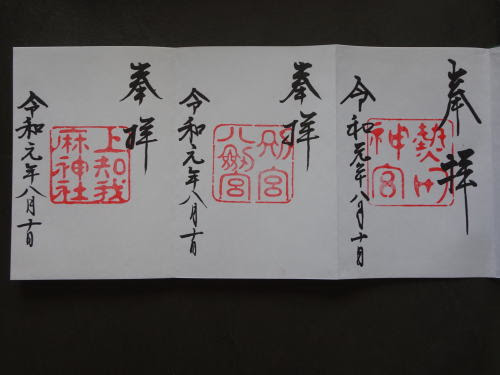 奉拝
熱田
神宮
令和元年八月十日
奉拝
別宮
八剱宮
令和元年八月十日
奉拝
上知我
麻神社
令和元年八月十日